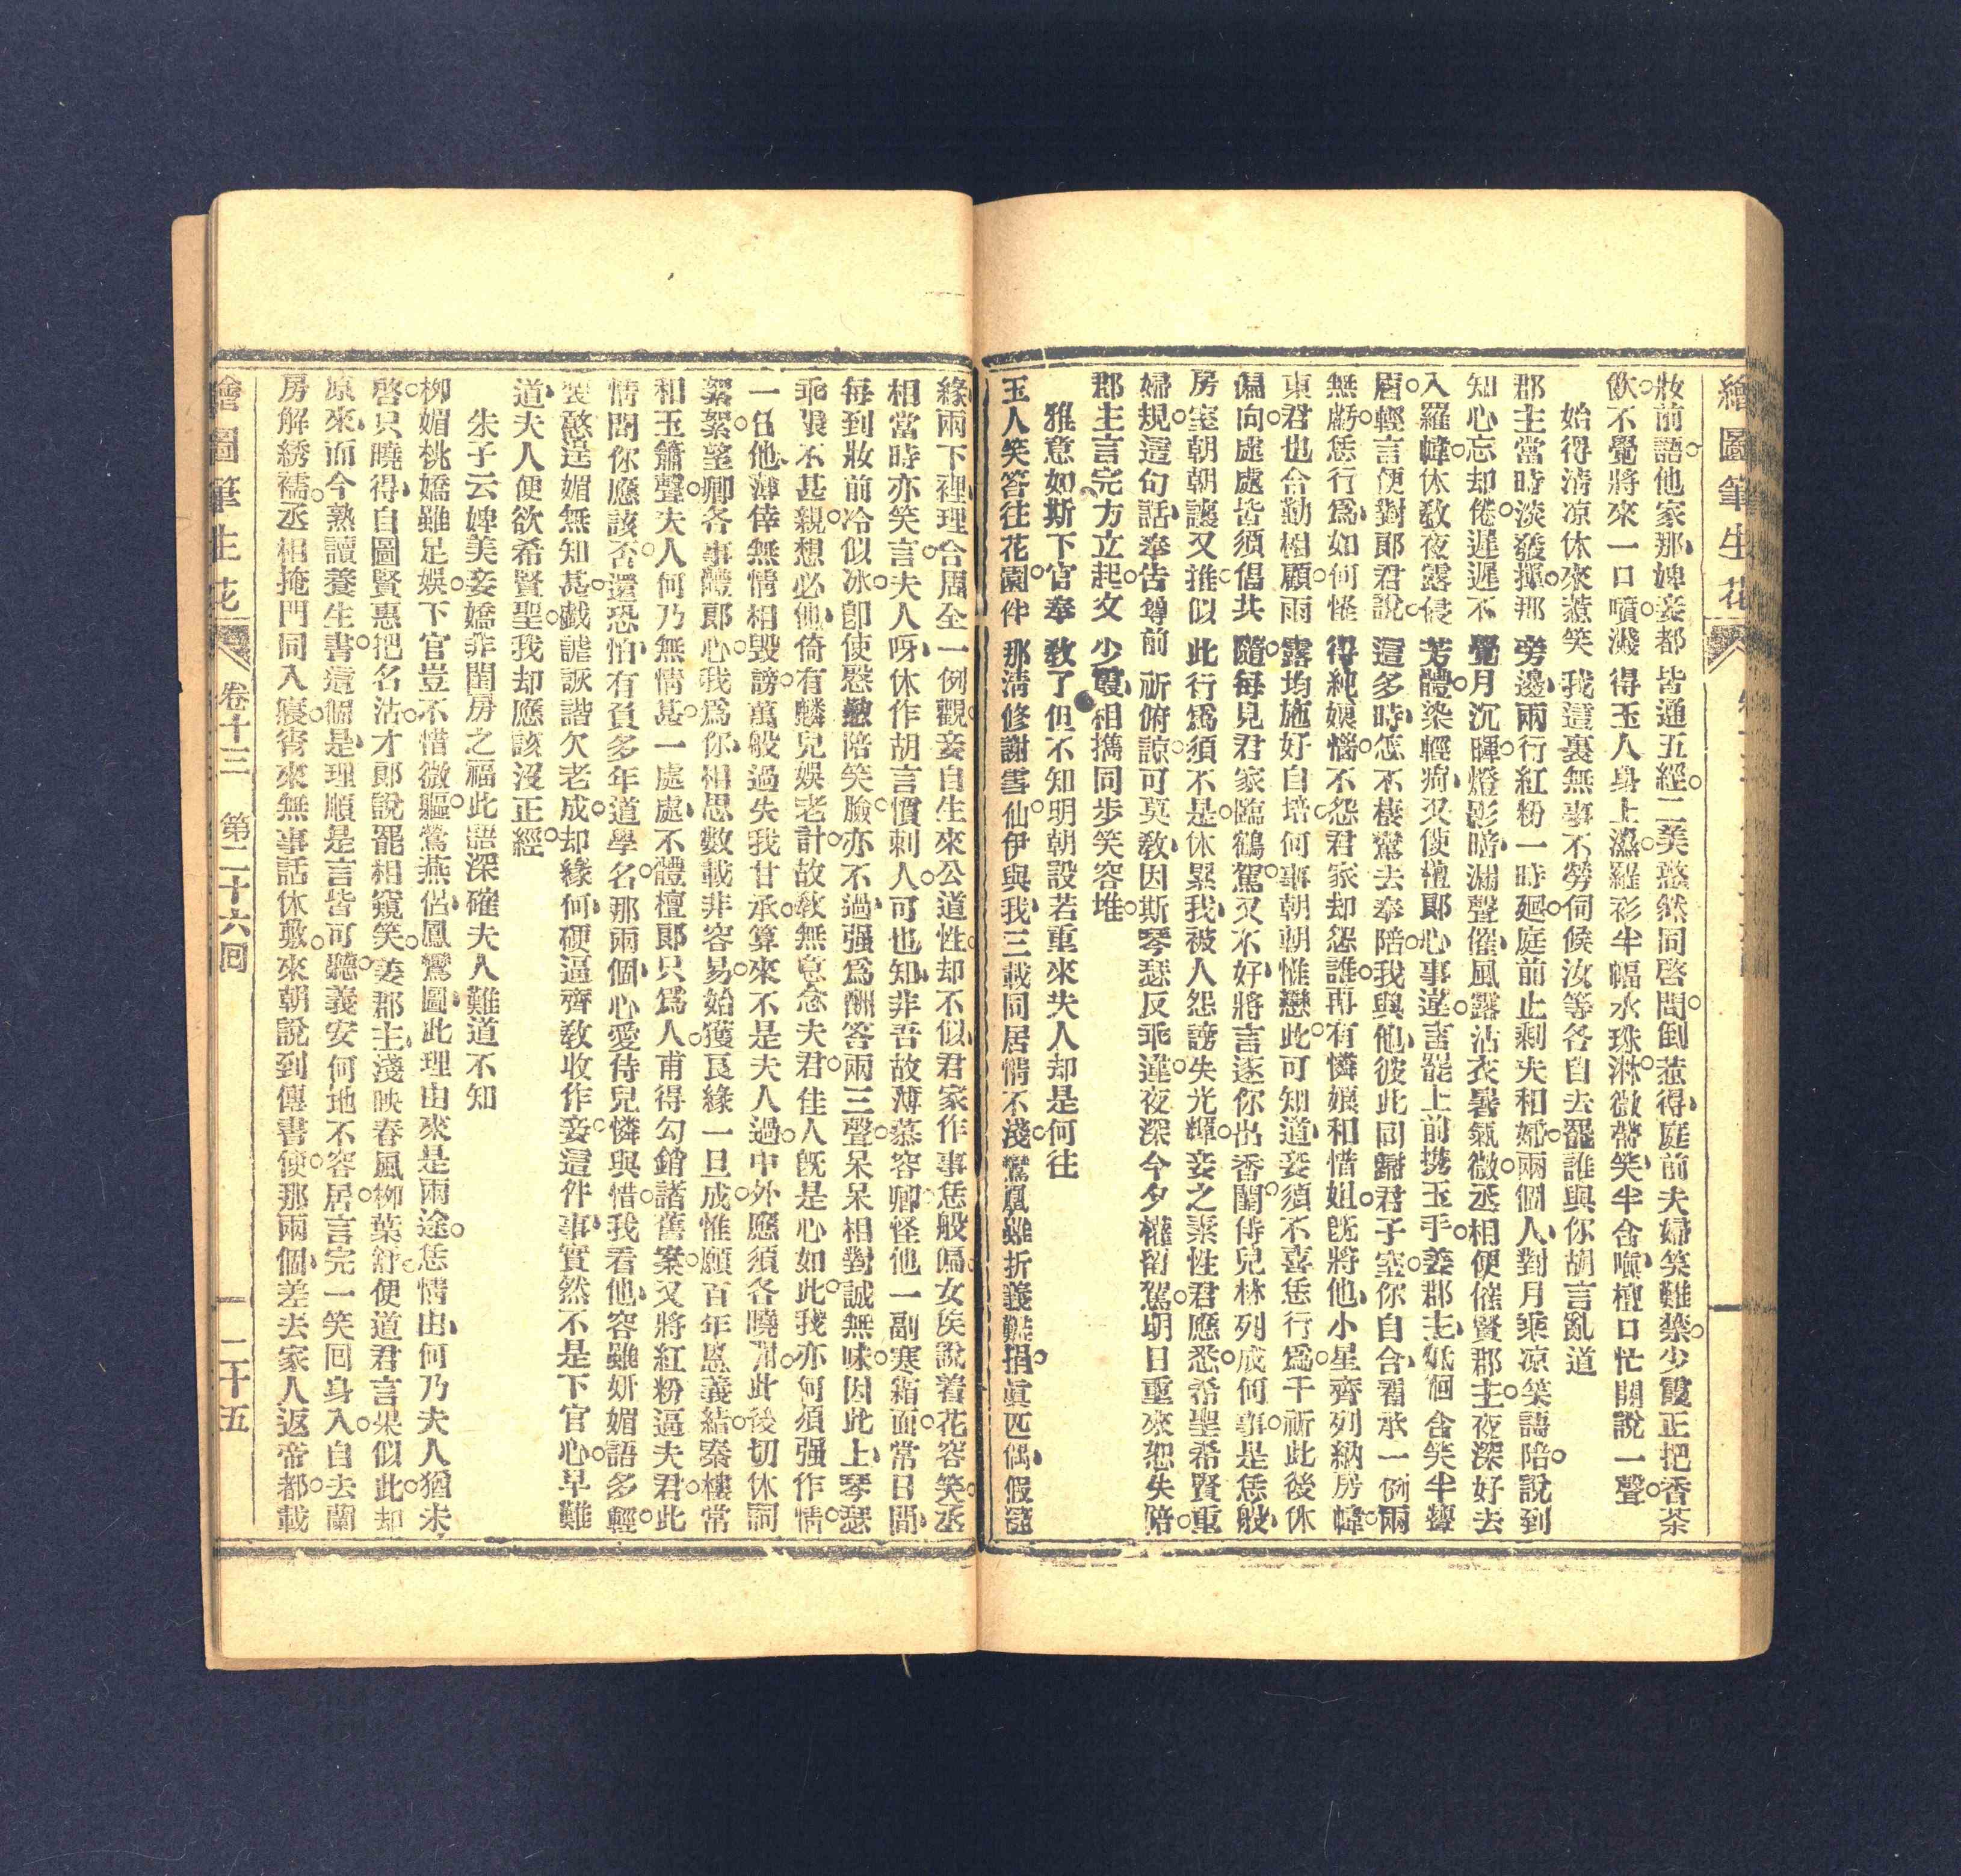 繪圖筆生花
妝前語他家那婢妾都皆通五經二美憨然同啓問倒惹得庭前夫婦笑難禁少霞正把香茶
飲不覺將來一口噴濺得玉人身上濕羅衫半幅水珠淋微帶笑半含嗔檀口忙開說一聲
始得清凉休來惹笑我這裏無事不勞伺候汝等各自去罷誰與你胡言亂道
郡主當時淡發揮那旁邊兩行紅粉一時廻庭前止剩夫和婦兩個人對月乘凉笑語陪說到
知心忘却倦遲遲不覺月沉暉燈影暗漏聲催風露沾衣暑氣微丞相便催賢郡主夜深好去
入羅幃休敎夜露侵芳體染輕疴又使檀郎心事違言罷上前携玉手姜郡主低徊含笑半顰
眉輕言便對郞君說這多時怎不棲鸞去奉陪我與他彼此同歸君子室你自合霑承一例兩
無虧恁行爲如何怪得純娘惱不怨君家却怨誰再有憐娘和惜姐旣將他小星齊列納房幃
東君也合勤相顧雨露均施好自培何事朝朝惟戀此可知道妾須不喜恁行爲千祈此後休
偏向處處皆須倡共隨每見君家臨鶴駕又不好將言逐你出香閨侍兒林列成何事是恁般
房室朝朝讓又推似此行爲須不是休累我被人怨謗失光輝妾之素性君應悉希聖希賢重
婦規這句話奉告尊前祈俯諒可莫敎因斯琴瑟反乖違夜深今夕權留駕明日重來恕失陪
郡主言完方立起文少霞相攜同步笑容堆
雅意如斯下官奉敎了但不知明朝設若重來夫人却是何往
玉人笑答往花園伴那淸修謝雪仙伊與我三載同居情不淺鸞鳳雖折義難捐眞匹偶假姻
緣兩下裡理合周全一例觀妾自生來公道性却不似君家作事恁般偏女俟說着花容笑丞
相當時亦笑言夫人呀休作胡言慣刺人可也知非吾故薄慕容卿怪他一副寒霜面常日間
每到妝前冷似冰卽使慇懃陪笑臉亦不過强爲酬答兩三聲呆呆相對誠無味因此上琴瑟
乖張不甚親想必他倚有麟兒娛老計故敎無意念夫君佳人旣是心如此我亦何須强作情
一任他薄倖無情相毀謗萬般過失我甘承算來不是夫人過中外應須各曉明此後切休詞
絮絮望卿各事體郎心我爲你相思數載非容易始獲良緣一旦成惟願百年恩義結秦樓常
和玉簫聲夫人何乃無情甚一處處不體檀郎只爲人甫得勾銷諸舊案又將紅粉逼夫君此
情問你應該否還恐怕有負多年道學名那兩個心愛侍兒憐與惜我看他容雖姸媚語多輕
裝憨逞媚無知甚戲謔詼諧欠老成却緣何硬逼齊敎收作妾這件事實然不是下官心早難
道夫人便欲希賢聖我却應該沒正經
朱子云婢美妾嬌非閨房之福此語深確夫人難道不知
柳媚桃嬌雖足娛下官豈不惜微軀鶯燕侶鳳鸞圖此理由來是兩途恁情由何乃夫人猶未
啓只曉得自圖賢惠把名沽才郎說罷相窺笑姜郡主淺映春風柳葉舒便道君言果似此却
原來而今熟讀養生書這個是理順是言皆可聽義安何地不容居言完一笑回身入自去蘭
房解綉襦丞相掩門同入寢宵來無事話休敷來朝說到傳書使那兩個差去家人返帝都載
繪圖筆生花 卷十三 第二十六回 二十五